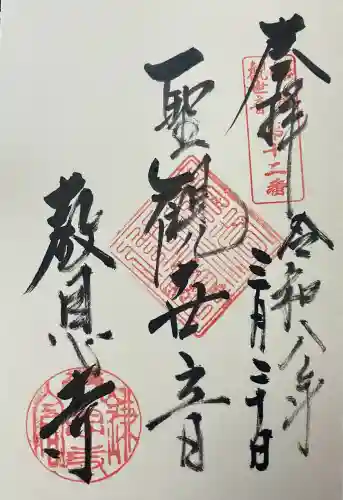 奉拝
令和八年
三月二十日
聖観世音
教恩寺
観世音
第十二番